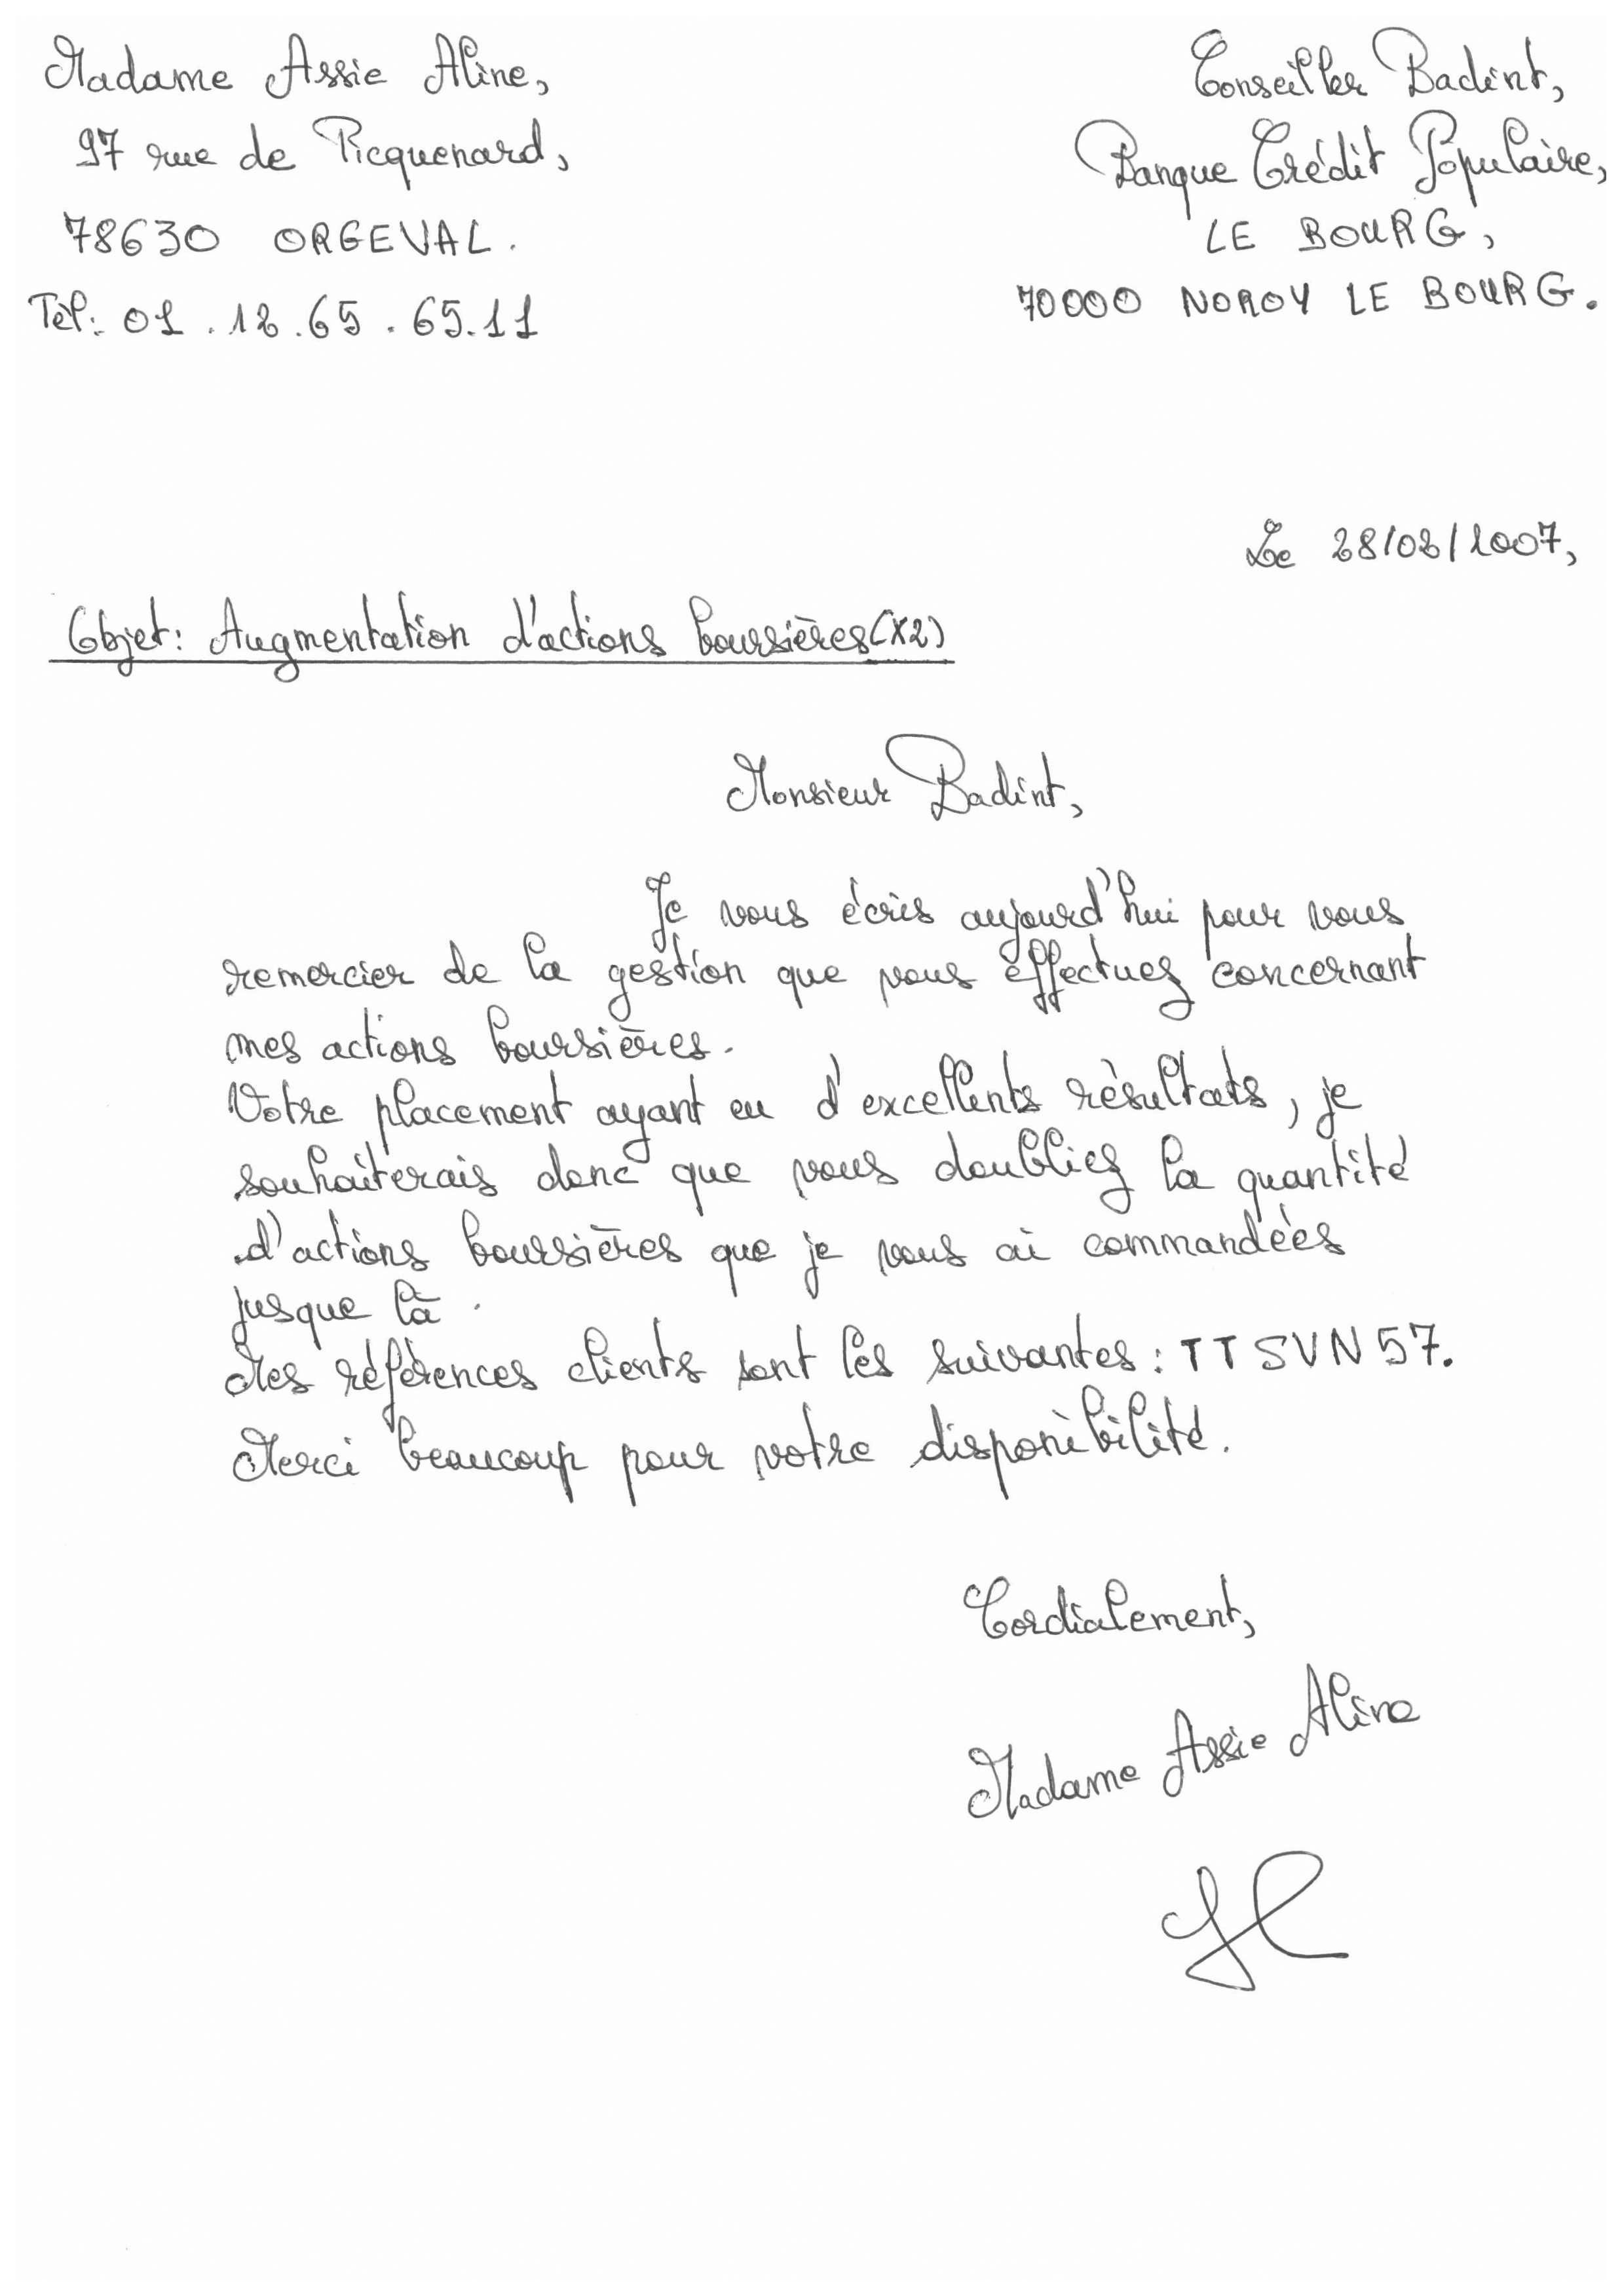 Madame Assie Aline,
97 rue de Picquenard,
78630 ORGEVAL.
Tél: 01.12.65.65.11
Conseiller Badint,
Banque Crédit Populaire,
LE BOURG,
70000 NOROY LE BOURG.
Le 28/02/2007,
Objet: Augmentation d'actions boursières (X2)
Monsieur Badint,
Je vous écris aujourd'hui pour vous
remercier de la gestion que vous effectuez concernant
mes actions boursières.
Votre placement ayant eu d'excellents résultats, je
souhaiterais donc que vous doubliez la quantité
d'actions boursières que je vous ai commandées
jusque là.
Mes références clients sont les suivantes : TTSVN57.
Merci beaucoup pour votre disponibilité.
Cordialement,
Madame Assie Aline